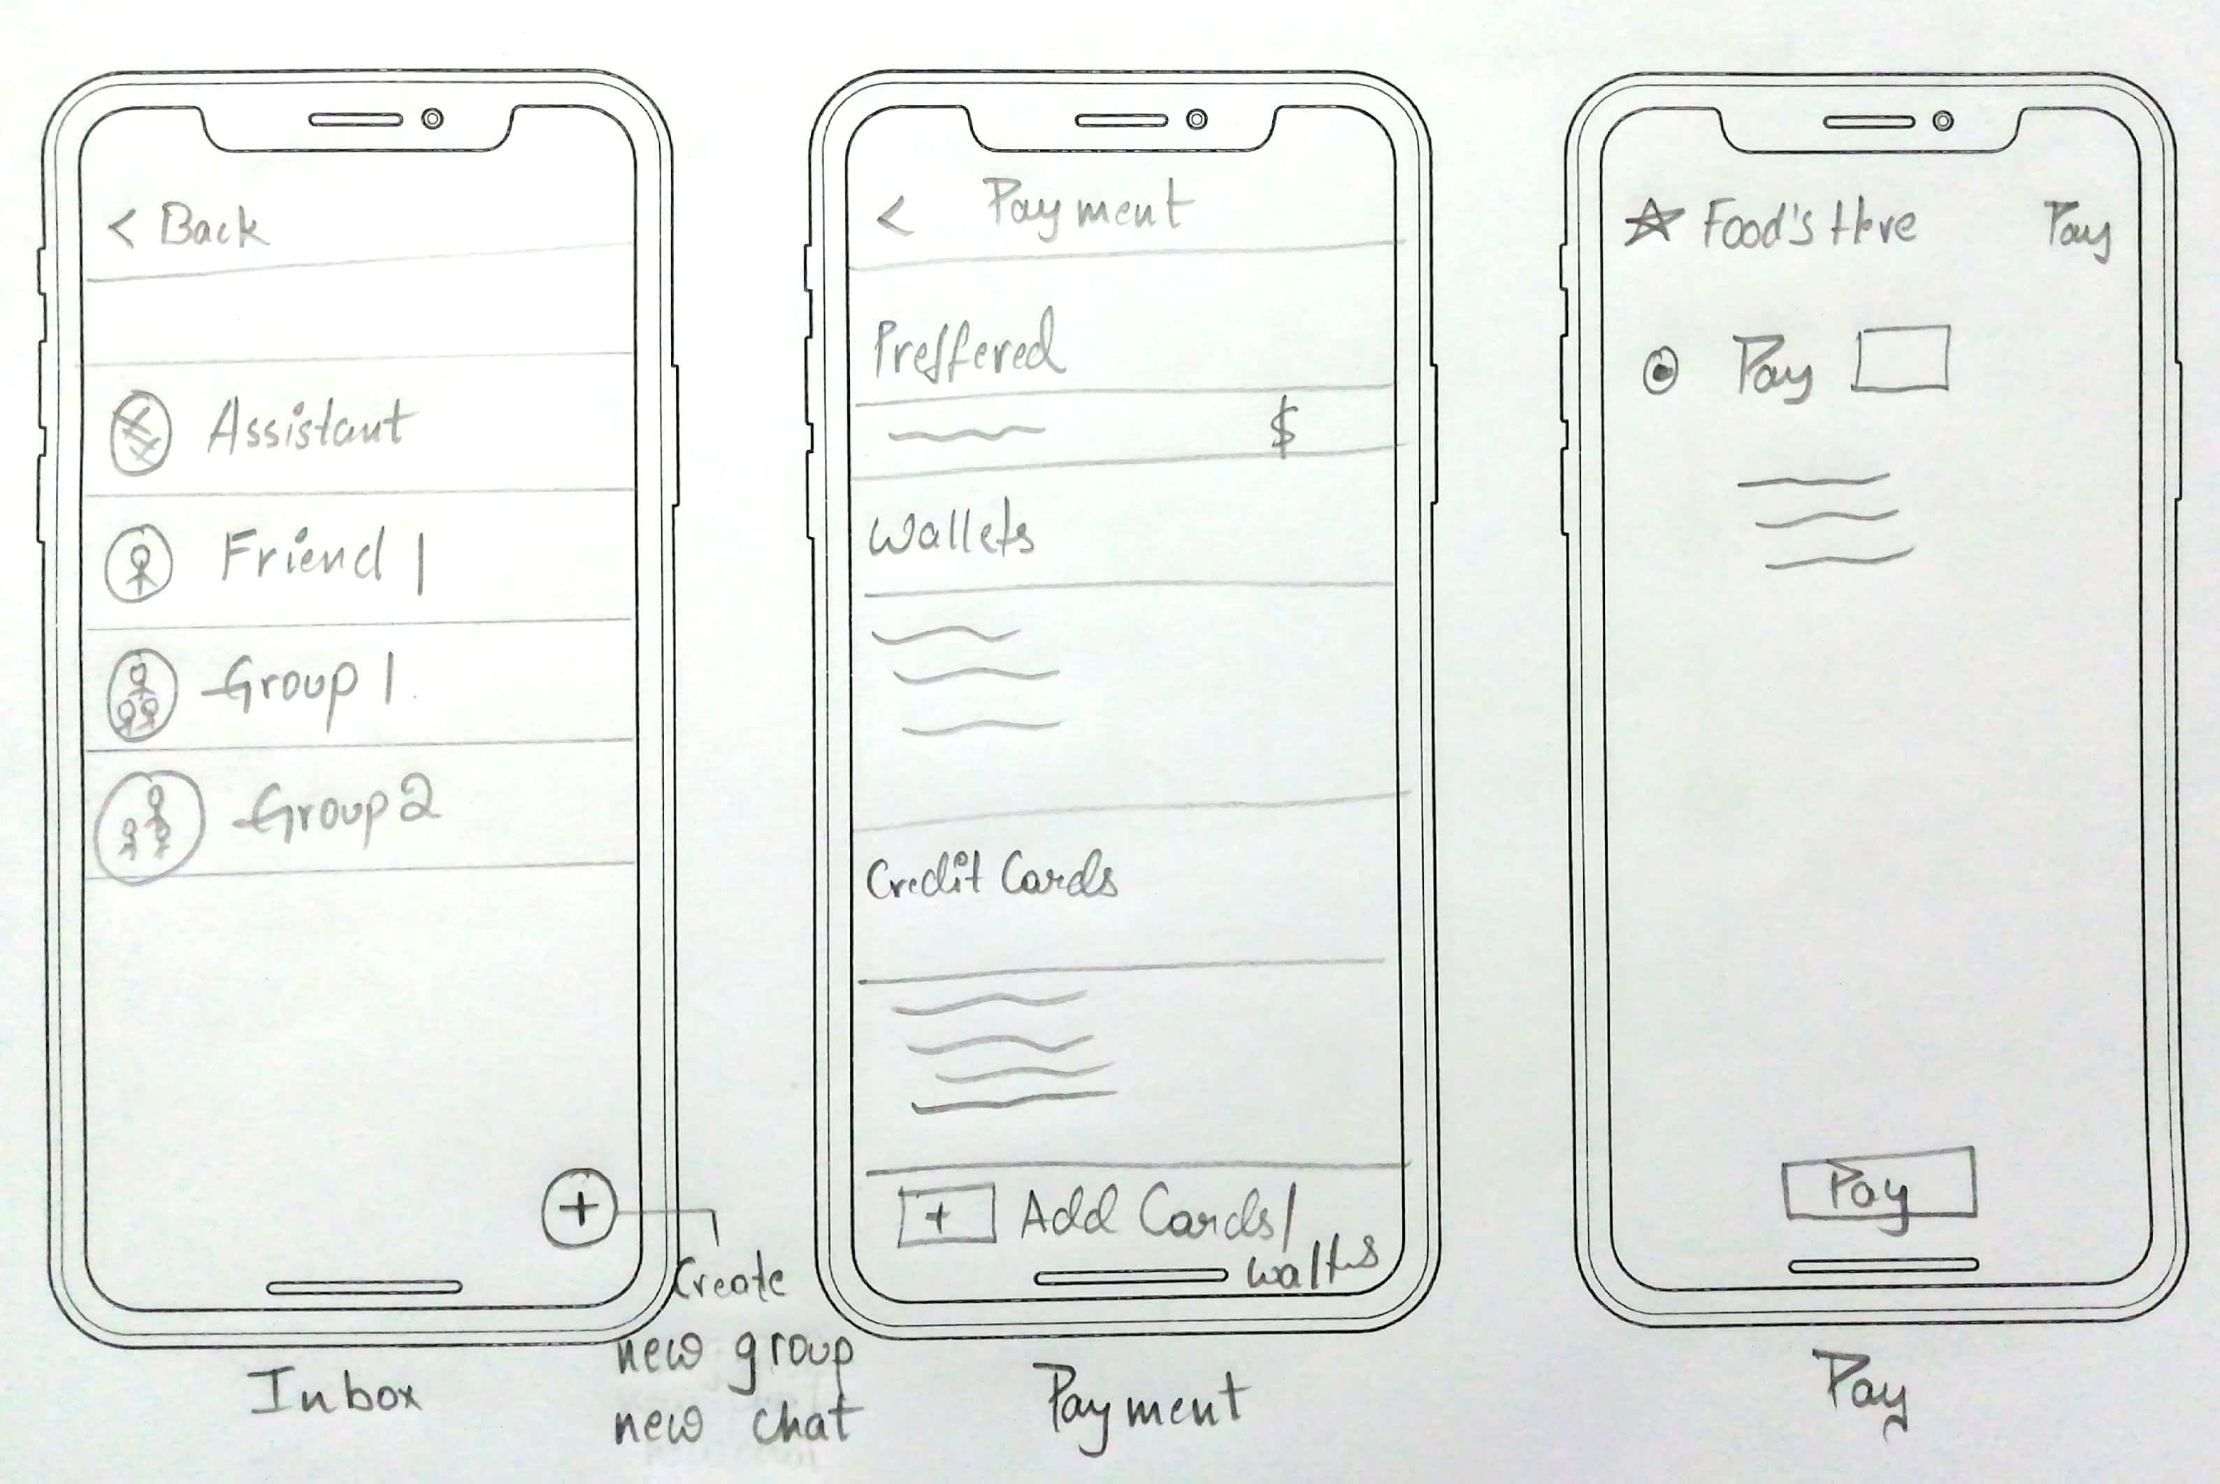 < Back
Assistant
Friend 1
Group 1
Group 2
+
Create
new group
new chat
Inbox
< Payment
Preffered
$
Wallets
Credit Cards
+ Add Cards/
Payment
Food's Here Pay
Pay
Pay
Pay